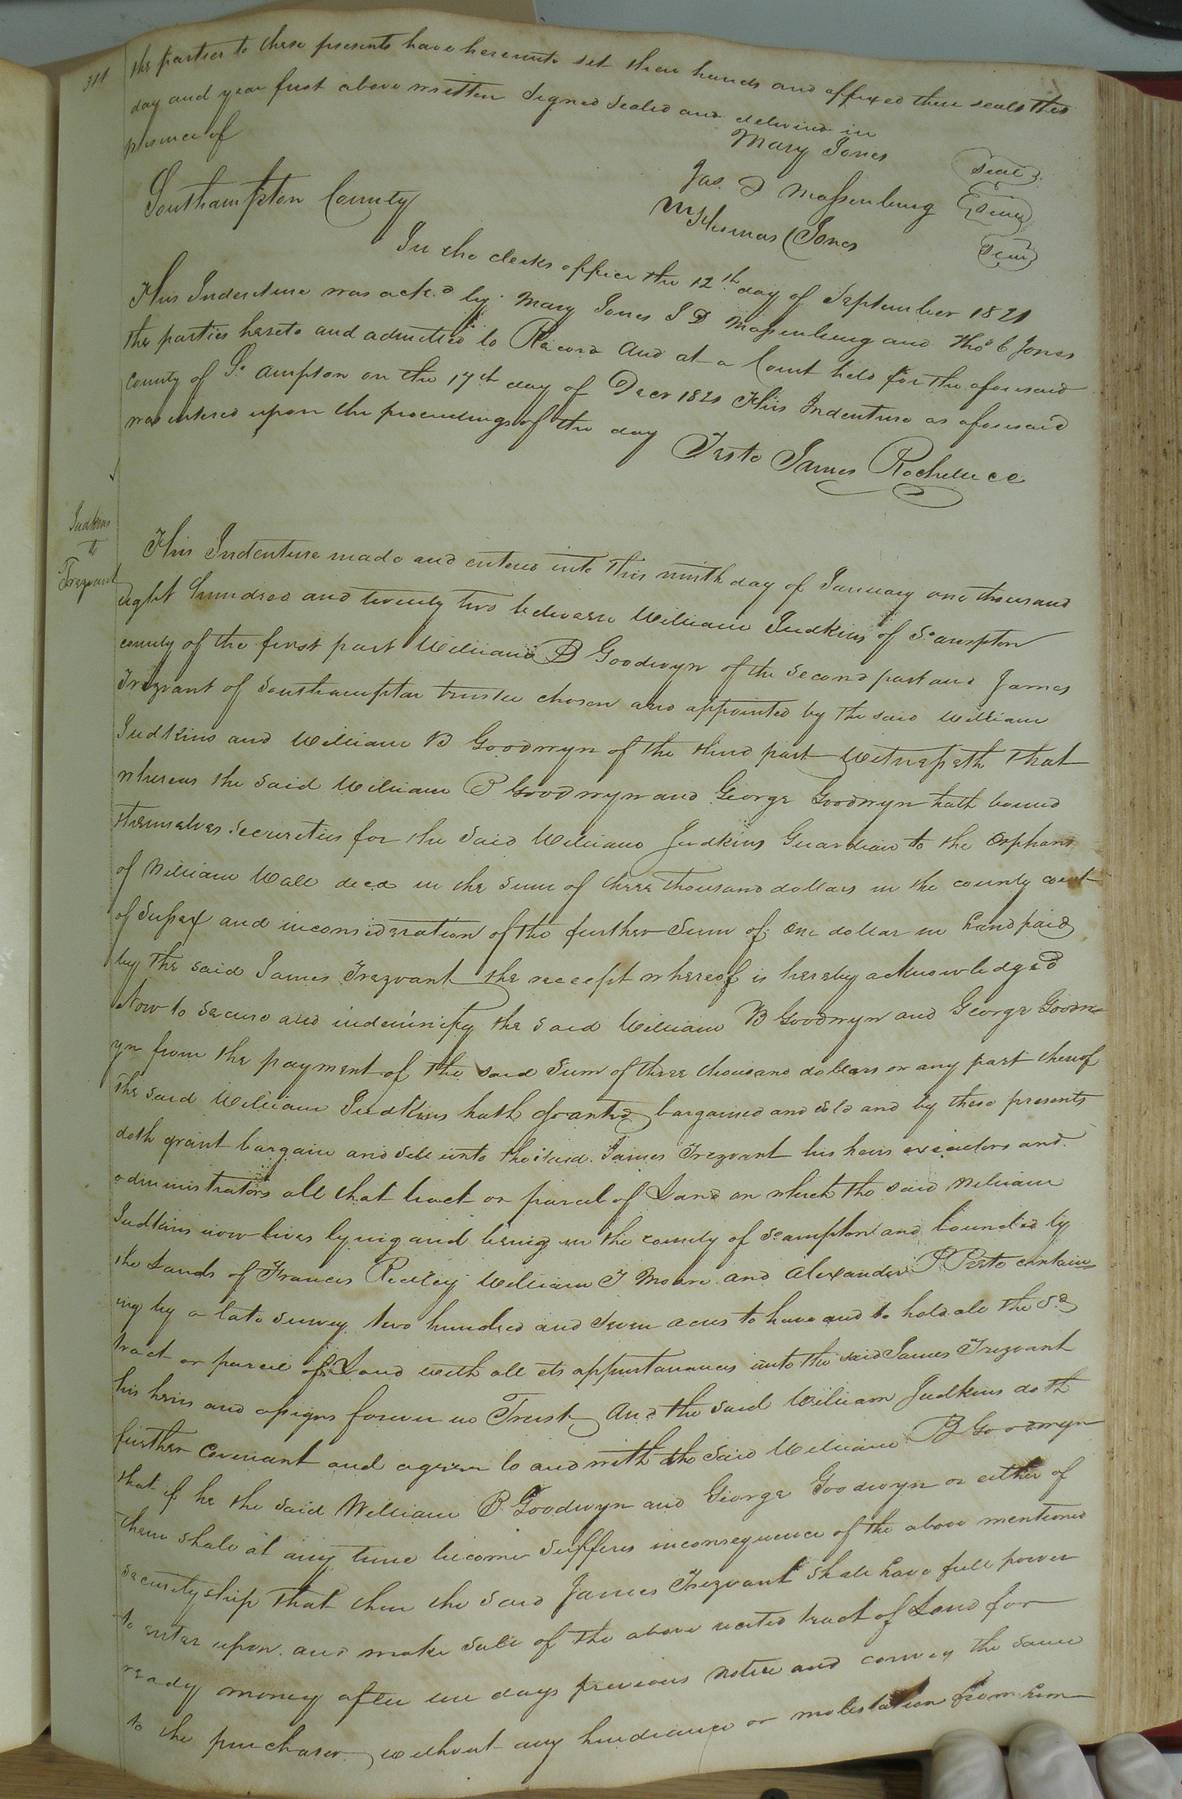 the parties to these presents have hereunto set their hands and affixed their seals the
day and year first above written Signed Sealed and delivered in
presence of
Mary Jones Seal
Jas. D Massenburg Seal
Thomas C Jones Seal
Southampton County
In the clerks office the 12th day of September 1821
This Indenture was ackd by Mary Jones J D Massenburg and Thos C Jones
the parties hereto and admitted to Record And at a Court held for the aforesaid
County of So ampton on the 17th day of Decr 1821 This Indenture as aforesaid
was entered upon the proceedings of the day
Teste James Rochelle cc
Judkins
to
Trezvant
This Indenture made and entered into this ninth day of January one thousand
eight hundred and twenty two between William Judkins of So ampton
county of the first part William B Goodwyn of the second part and James
Trezvant of Southampton trustee chosen and appointed by the said William
Judkins and William B Goodwyn of the third part Witnesseth that
whereas the said William B Goodwyn and George Goodwyn hath bound
themselves securities for the said William Judkins Guardian to the Orphans
of William Wall decd in the sum of three thousand dollars in the county court
of Sussex and inconsideration of the further Sum of one dollar in hand paid
by the said James Trezvant the receipt whereof is hereby acknowledged
Now to secure and indemnify the said William B Goodwyn and George Goodw
yn from the payment of the said Sum of three thousand dollars or any part thereof
the said William Judkins hath granted bargained and sold and by these presents
doth grant bargain and sell unto the said James Trezvant his heirs executors and
administrators all that tract or parcel of Land on which the said William
Judkins now lives lying and being in the county of So ampton and bounded by
the Lands of Francis Ridley William T Moore and Alexander P Peete contain
ing by a late survey two hundred and seven acres to have and to hold all the sd
tract or parcel of Land with all its appurtanances unto the said James Trezvant
his heirs and assigns forever in Trust And the said William Judkins doth
further covenant and agree to and with the said William B Goodwyn
that if he the said William B Goodwyn and George Goodwyn or either of
them shall at any time become Sufferes inconsequence of the above mentioned
securityship that then the said James Trezvant shall have full power
to enter upon and make sale of the above recited tract of Land for
ready money after ten days previous notice and convey the same
to the purchaser without any hindrance or molestation from him